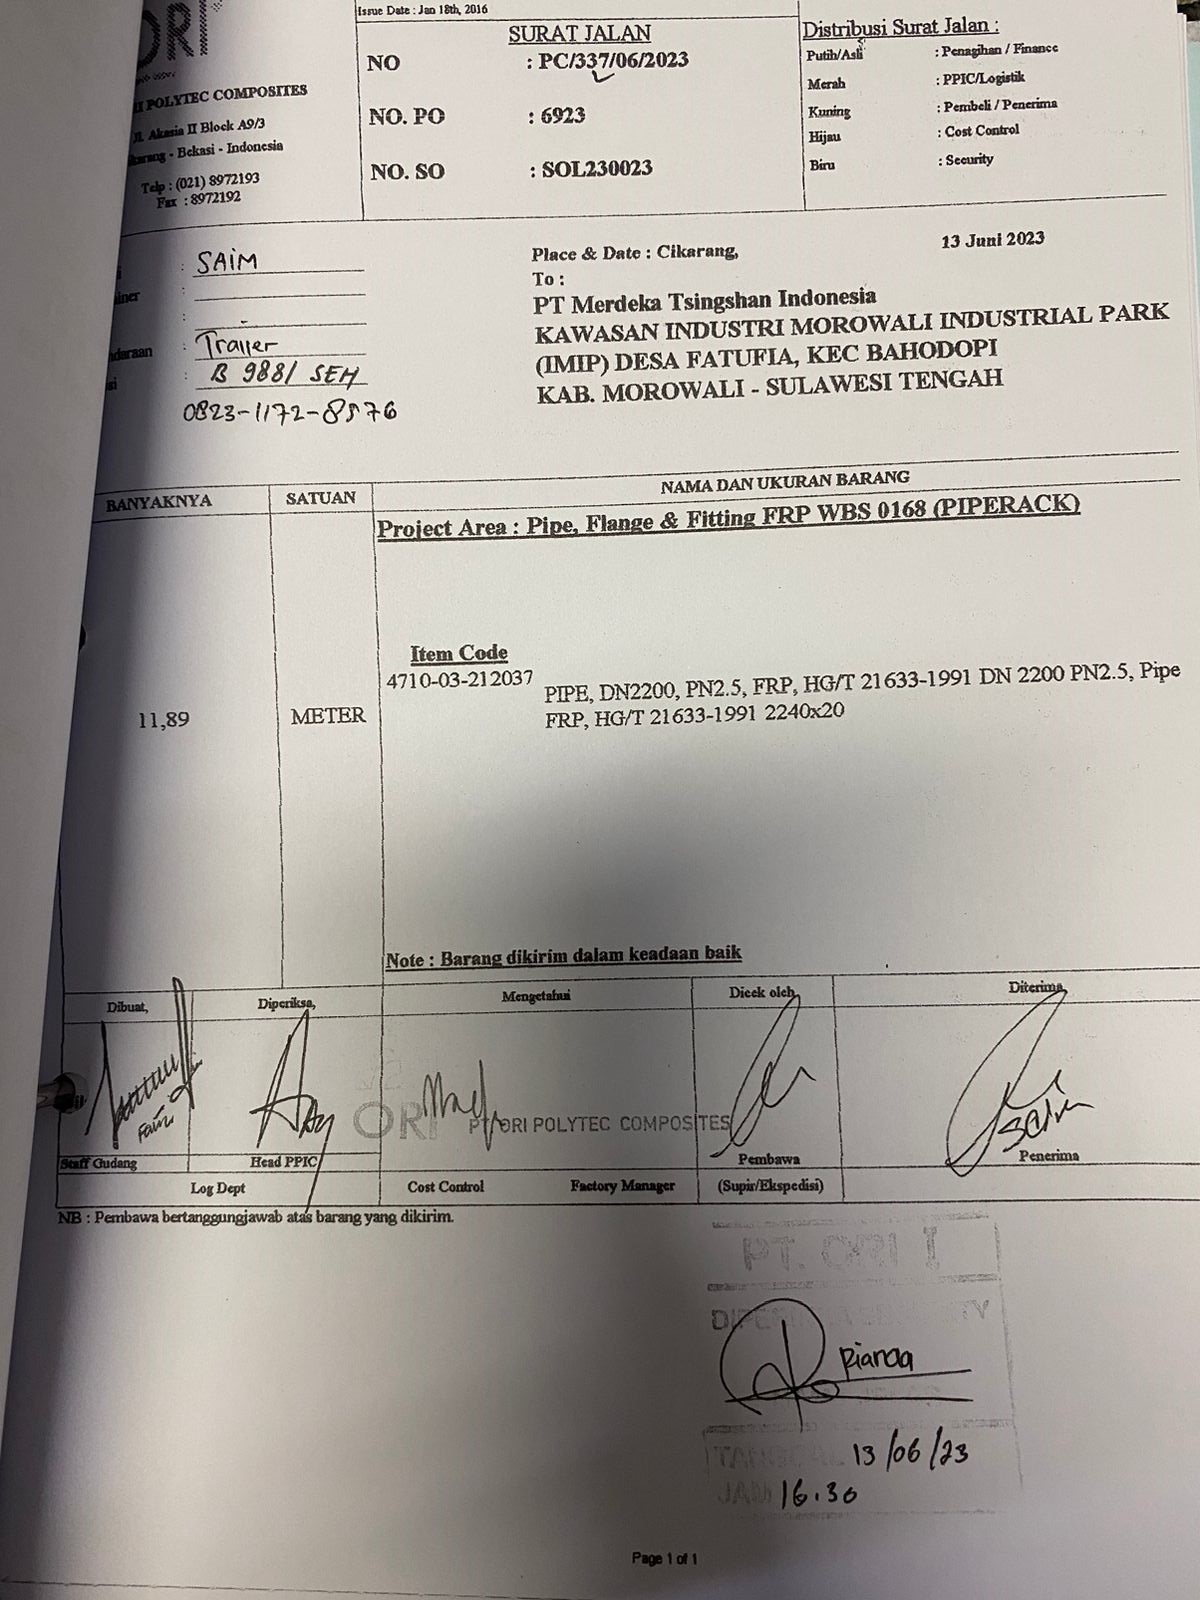 ORI
Issue Date : Jan 18th, 2016
POLYTEC COMPOSITES
Jl. Akasia II Block A9/3
- Bekasi - Indonesia
Telp : (021) 8972193
Fax : 8972192
SURAT JALAN
NO : PC/337/06/2023
NO. PO : 6923
NO. SO : SOL230023
Distribusi Surat Jalan :
Putih/Asli : Penagihan / Finance
Merah : PPIC/Logistik
Kuning : Pembeli / Penerima
Hijau : Cost Control
Biru : Security
: SAIM
:
:
: Trailer
: B 9881 SEH
0823-1172-8576
Place & Date : Cikarang, 13 Juni 2023
To :
PT Merdeka Tsingshan Indonesia
KAWASAN INDUSTRI MOROWALI INDUSTRIAL PARK
(IMIP) DESA FATUFIA, KEC BAHODOPI
KAB. MOROWALI - SULAWESI TENGAH
BANYAKNYA SATUAN NAMA DAN UKURAN BARANG
Project Area : Pipe, Flange & Fitting FRP WBS 0168 (PIPERACK)
Item Code
4710-03-212037 PIPE, DN2200, PN2.5, FRP, HG/T 21633-1991 DN 2200 PN2.5, Pipe
11,89 METER FRP, HG/T 21633-1991 2240x20
Note : Barang dikirim dalam keadaan baik
Dibuat, Diperiksa, Mengetahui Dicek oleh, Diterima,
ORI PT ORI POLYTEC COMPOSITES
Saim
Staff Gudang Head PPIC Pembawa Penerima
Log Dept Cost Control Factory Manager (Supir/Ekspedisi)
NB : Pembawa bertanggungjawab atas barang yang dikirim.
PT. ORI I
Rianda
13/06/23
JAM 16.30
Page 1 of 1